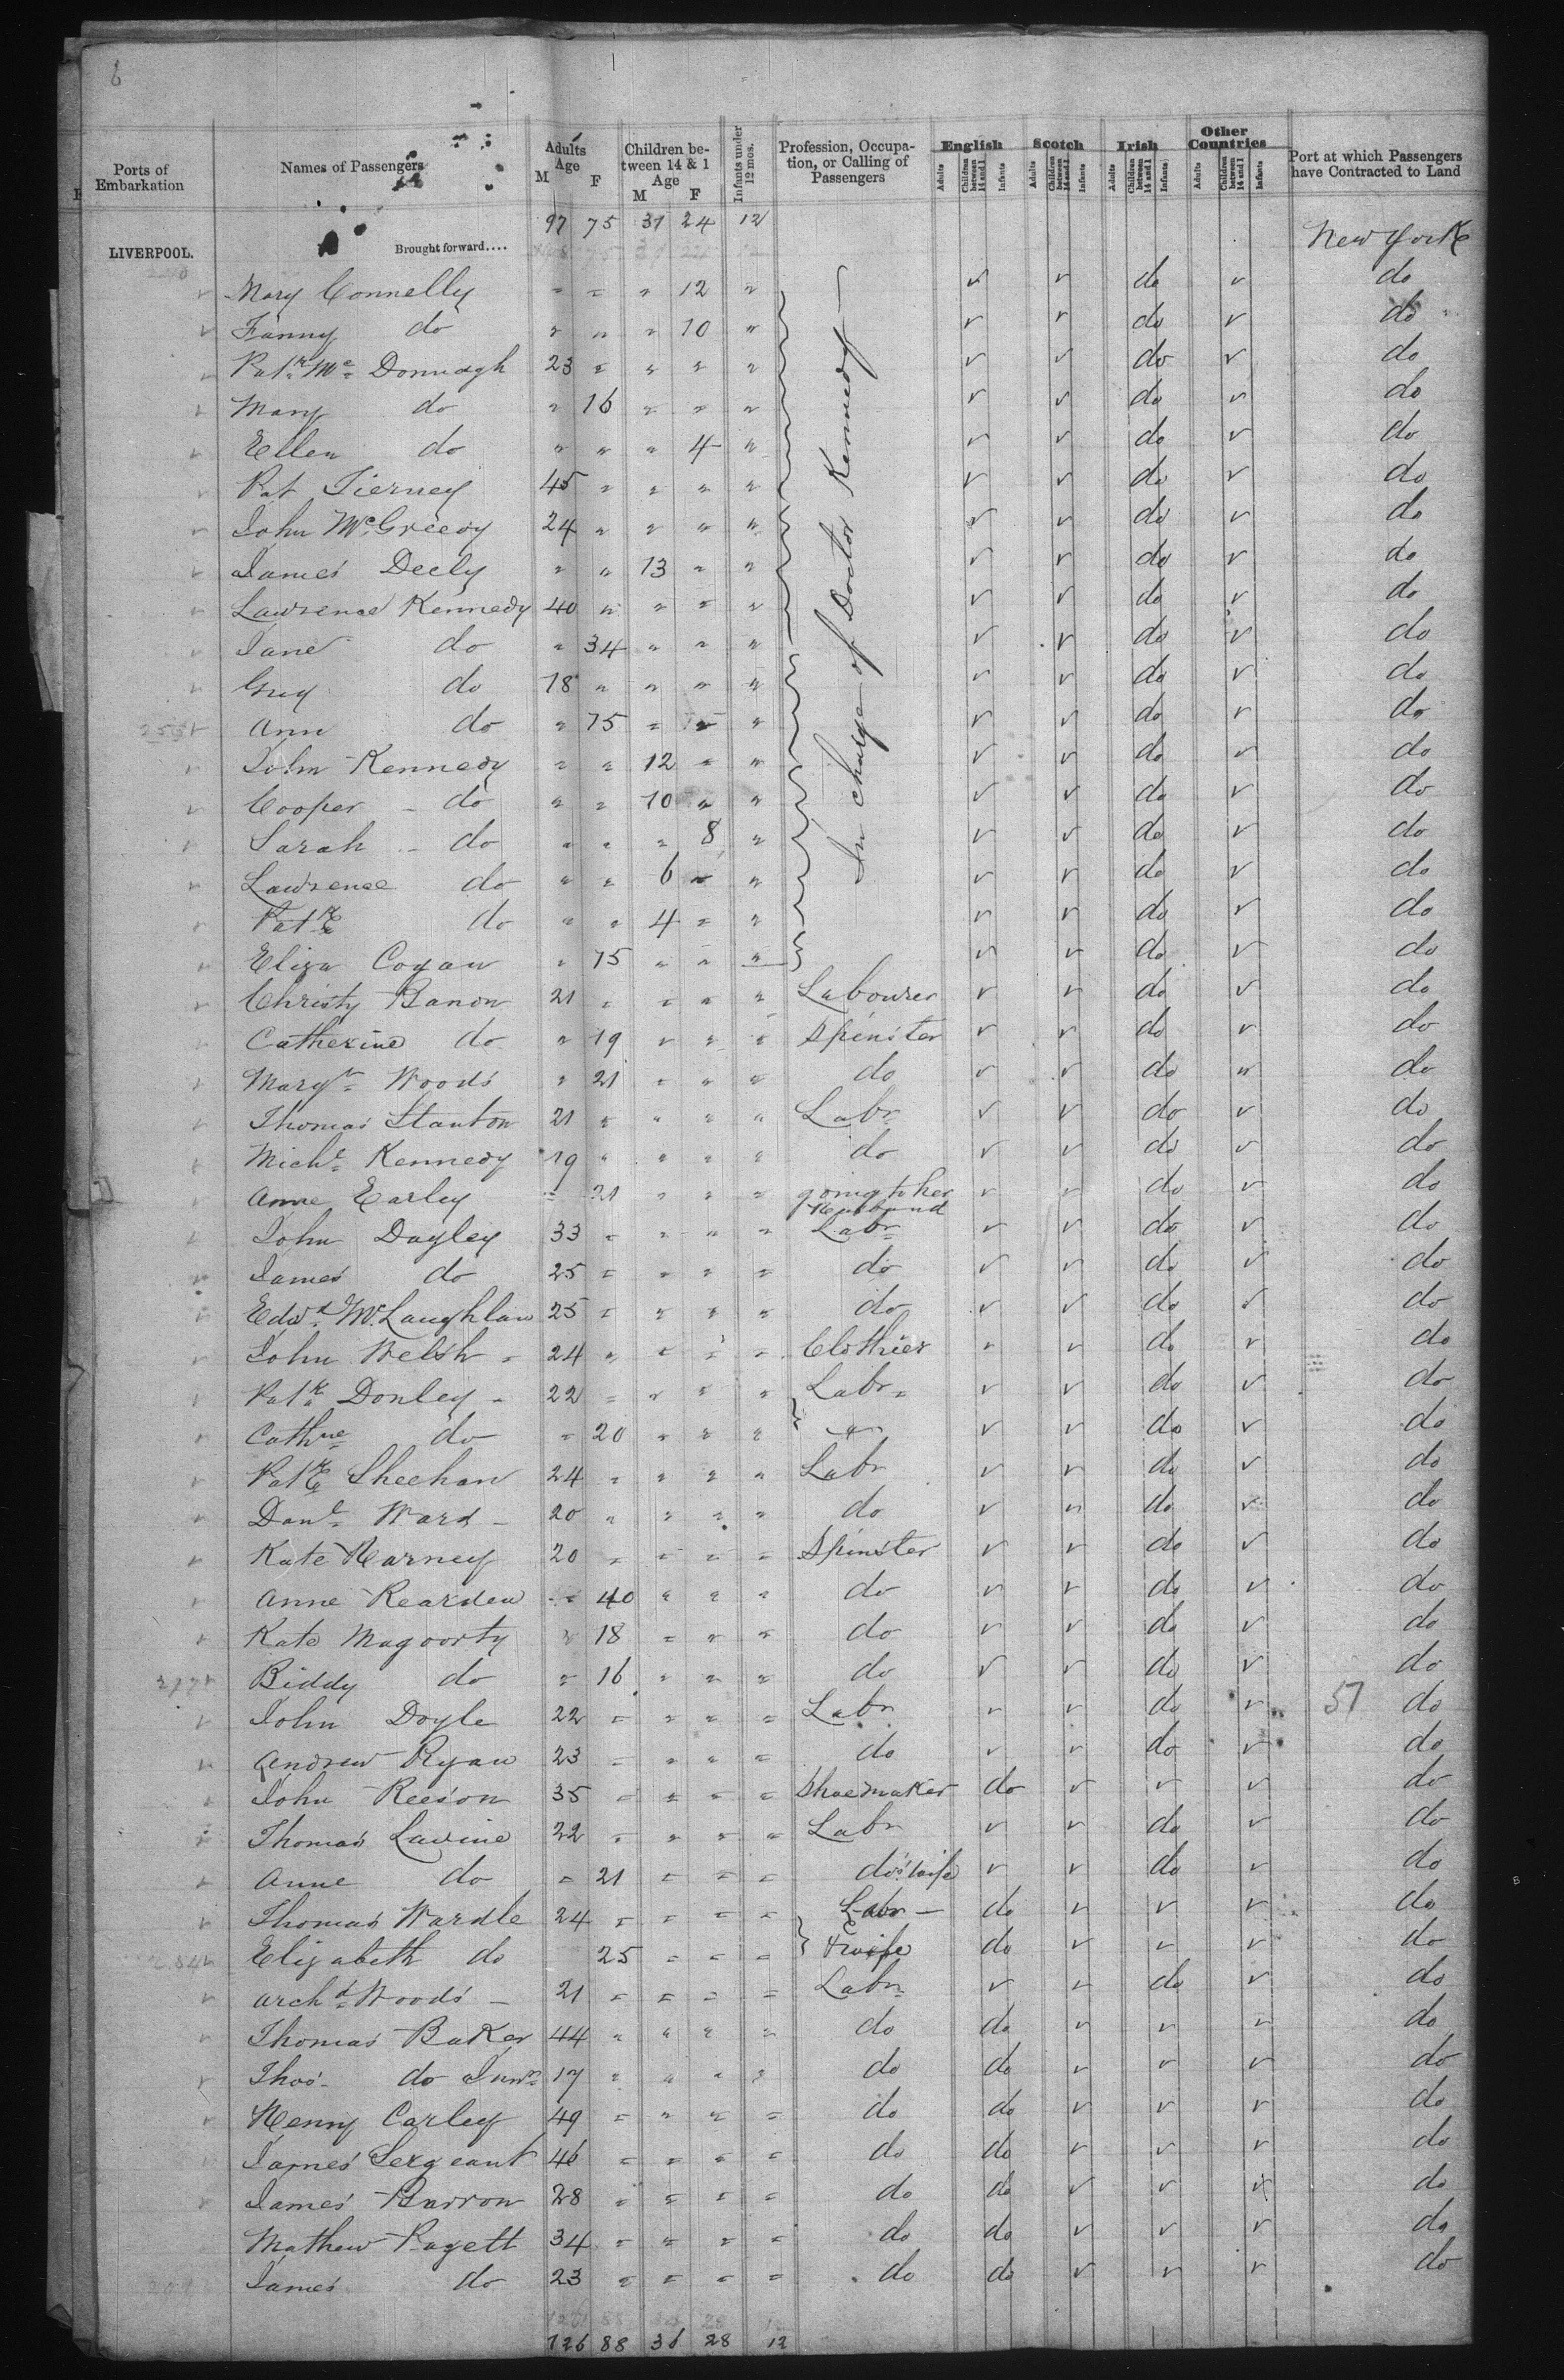 6
Ports of Embarkation | Names of Passengers | Adults Age M F | Children between 14 & 1 Age M F | Infants under 12 mos. | Profession, Occupation, or Calling of Passengers | English Adults Children between 14 and 1 Infants | Scotch Adults Children between 14 and 1 Infants | Irish Adults Children between 14 and 1 Infants | Other Countries Adults Children between 14 and 1 Infants | Port at which Passengers have Contracted to Land
97 75 31 24 12
LIVERPOOL. Brought forward.... New York
Mary Connelly " " " 12 " do do
Fanny do " " " 10 " do do
Patk Mc Donnagh 23 " " " " do do
Mary do " 16 " " " do do
Ellen do " " " 4 " do do
Pat Tierney 45 " " " " do do
John McGreevy 24 " " " " do do
James Deely " " 13 " " do do
Lawrence Kennedy 40 " " " " do do
Jane do " 34 " " " do do
Guy do 18 " " " " do do
Ann do " 15 " " " do do
John Kennedy " " 12 " " do do
Cooper - do " " 10 " " do do
Sarah - do " " " 8 " do do
Lawrence do " " 6 " " do do
Patk do " " 4 " " do do
Eliza Cogan " 15 " " " do do
In charge of Doctor Kennedy
Christy Banon 21 " " " " Labourer do do
Catherine do " 19 " " " Spinster do do
Margt Woods " 21 " " " do do do
Thomas Stanton 21 " " " " Labr do do
Michl Kennedy 19 " " " " do do do
Anne Earley " 21 " " " going to her Husband do do
John Dayley 33 " " " " Labr do do
James do 25 " " " " do do do
Edwd McLaughlan 25 " " " " do do do
John Welsh 24 " " " " Clothier do do
Patk Donley 22 " " " " Labr do do
Cathne do " 20 " " " do do
Patk Sheehan 24 " " " " Labr do do
Danl Ward 20 " " " " do do do
Kate Kearney 20 " " " " Spinster do do
Anne Rearden " 40 " " " do do do
Kate Magoorty " 18 " " " do do do
Biddy do " 16 " " " do do do
John Doyle 22 " " " " Labr do 57 do
Andrew Ryan 23 " " " " do do do
John Reeson 35 " " " " Shoemaker do do
Thomas Lavine 22 " " " " Labr do do
Anne do " 21 " " " do's wife do do
Thomas Wardle 24 " " " " Labr do do
Elizabeth do 25 " " " & wife do do
Archd Woods 21 " " " " Labr do do
Thomas Baker 44 " " " " do do do
Thos do Junr 17 " " " " do do do
Henry Carley 49 " " " " do do do
James Sergeant 46 " " " " do do do
James Barron 28 " " " " do do do
Mathew Pagett 34 " " " " do do do
James do 23 " " " " do do do
126 88 36 28 12